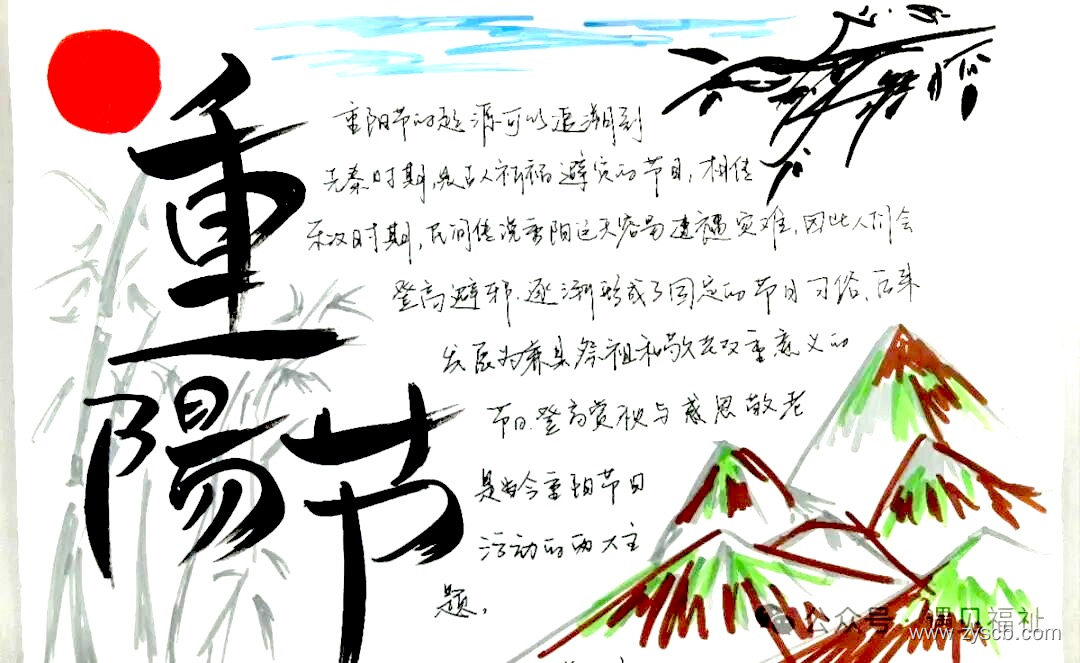 重陽节
重阳节的起源可以追溯到
先秦时期,是古人祈福避灾的节日,相传
东汉时期,民间传说重阳这天容易遭遇灾难,因此人们会
登高避邪.逐渐形成了固定的节日习俗.后来
发展为兼具祭祖和敬老双重意义的
节日.登高赏秋与感恩敬老
是当今重阳节日
活动的两大主
题。
公众号·遇见福祉
www.zyscb.com